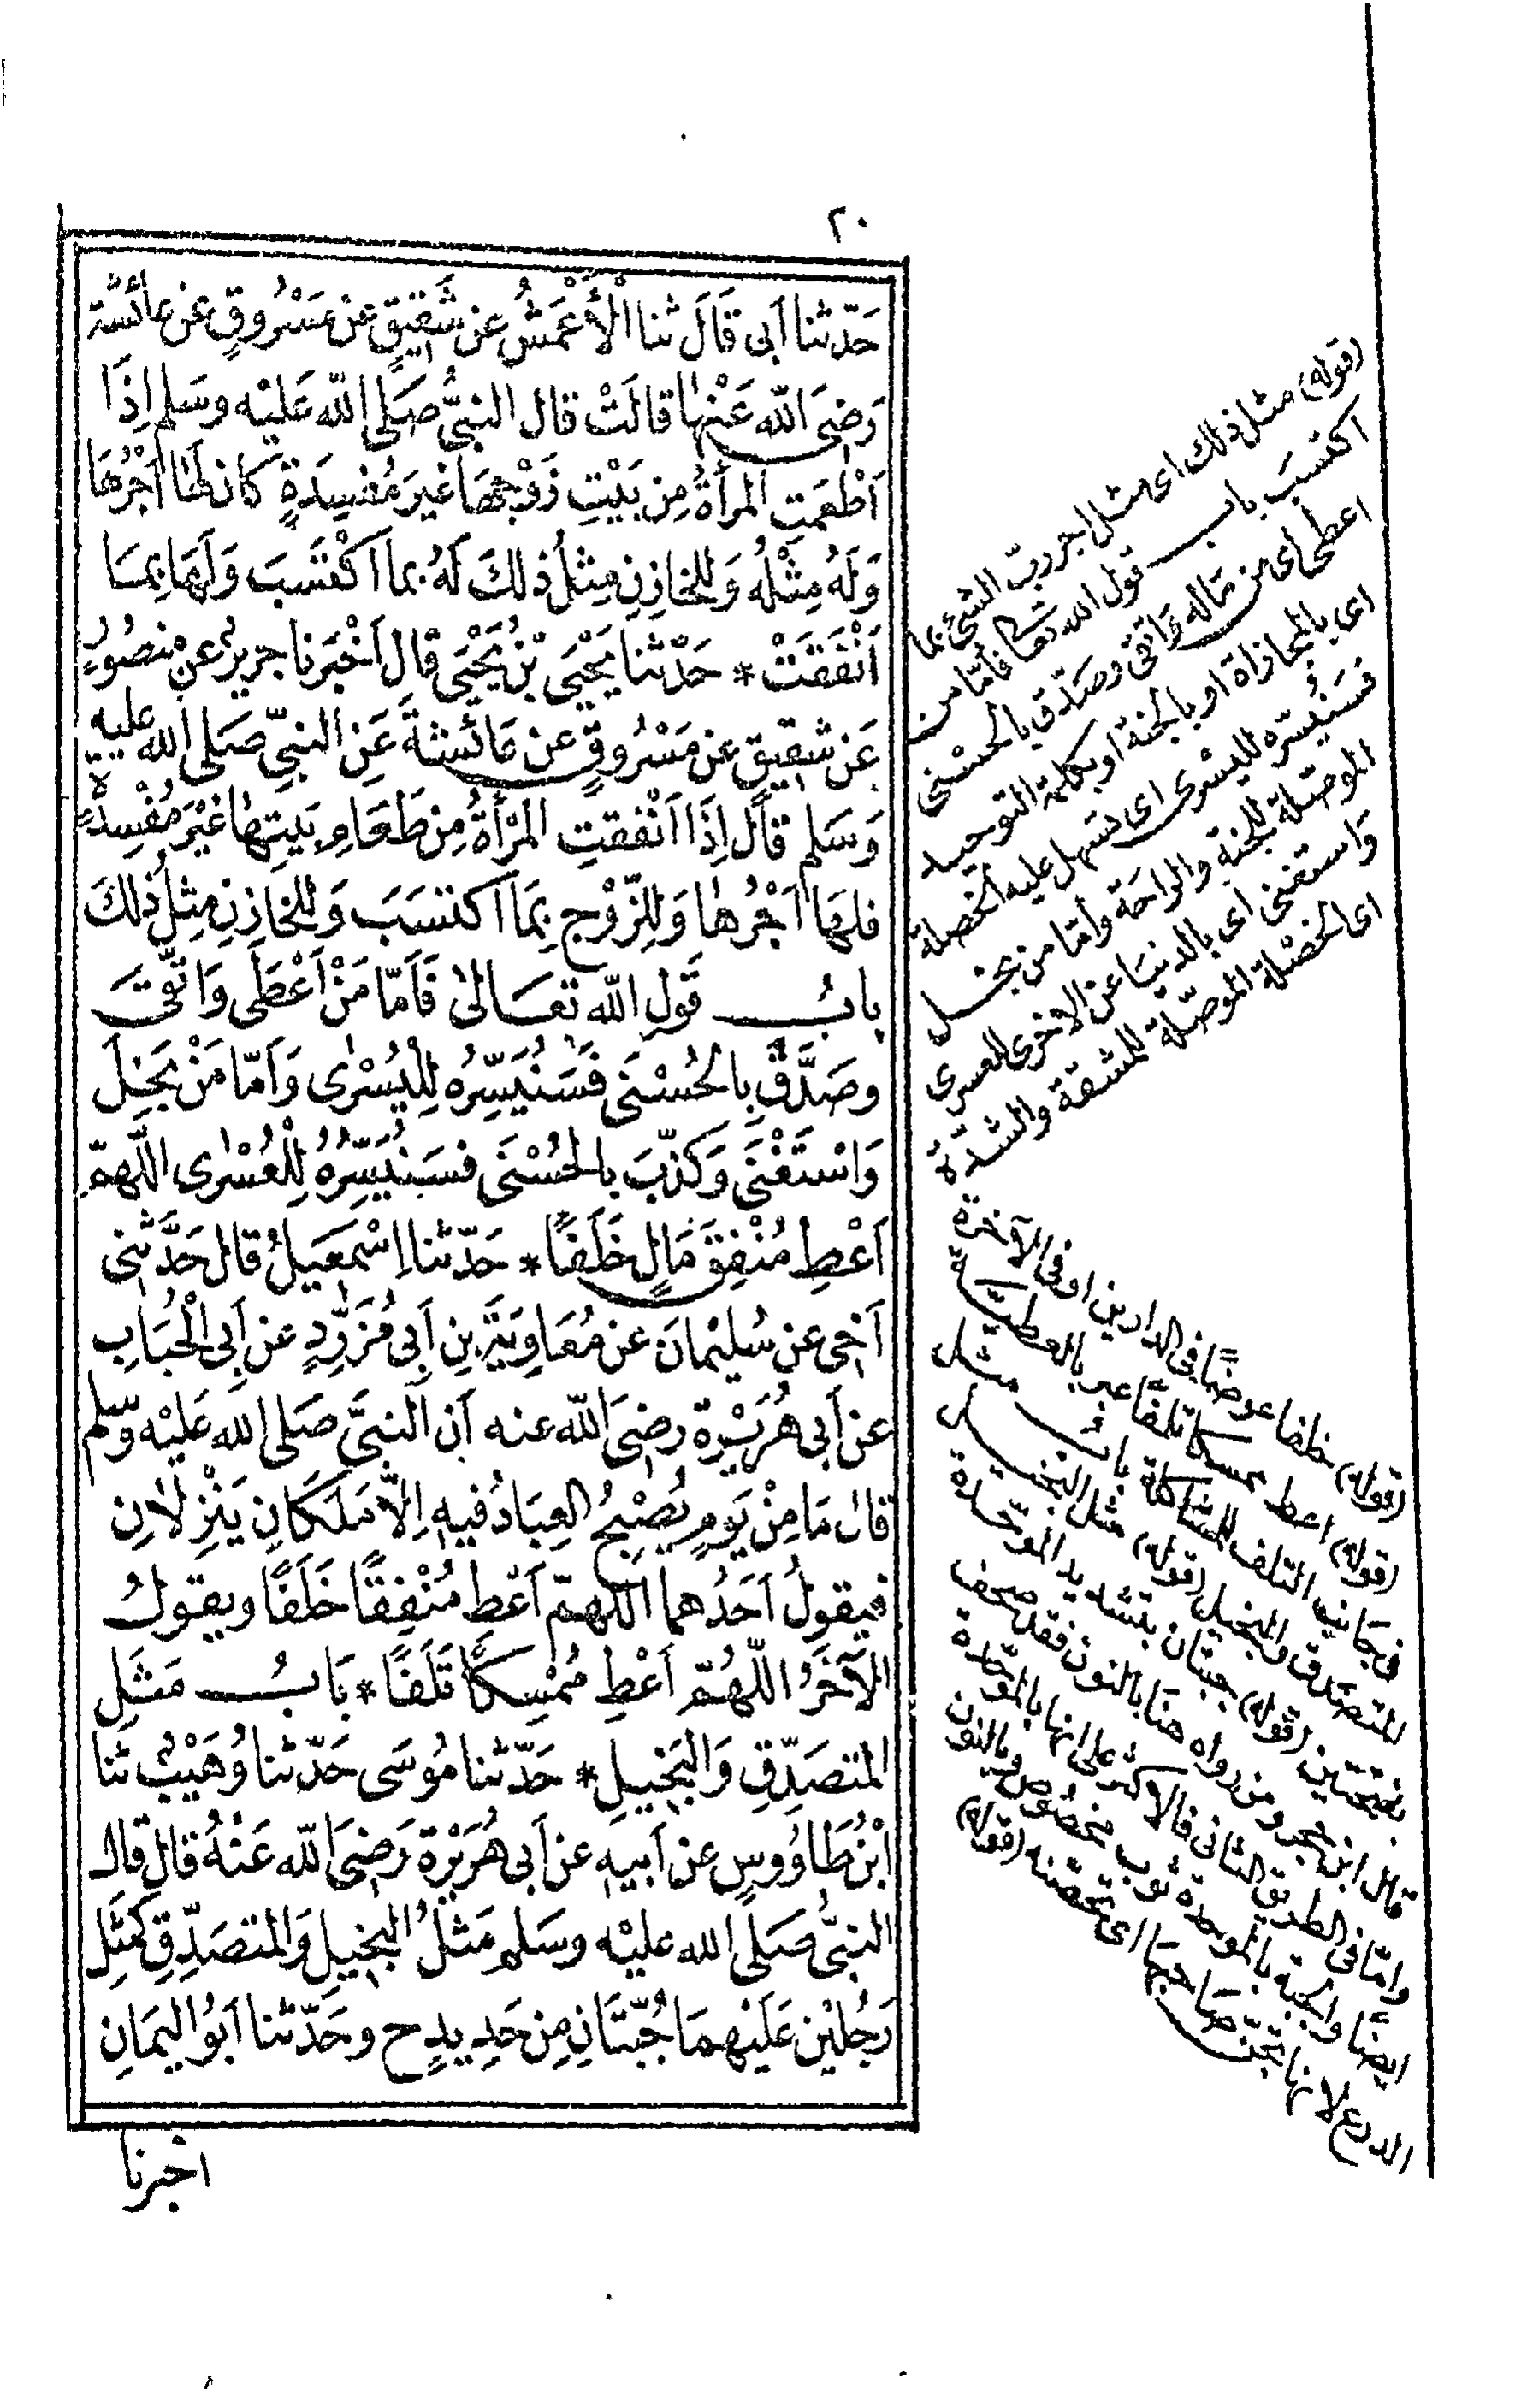 ٢٠
حَدّثنا أبى قَالَ ثنا الْأَعْمَشُ عن شَقِيقٍ عن مَسْرُوقٍ عن عائشة
رَضِىَ اللّه عَنْها قالَتْ قال النبىُّ صَلى اللّه عَلَيْه وسَلم إِذَا
أَطْعَمَتِ المرأةُ مِن بَيْتِ زَوْجِهَا غيرَ مُفْسِدَةٍ كان لَها أَجْرُهَا
وَلَهُ مِثْلُهُ وَلِلخازِنِ مِثلُ ذلكَ لَهُ بما اكْتَسَبَ وَلَهَا بِمَا
أَنْفَقَتْ * حَدّثنا يَحْيَى بْنُ يَحْيَى قال أَخْبَرنا جريرٌ عن منصُورٍ
عَن شقِيقٍ عن مَسْرُوقٍ عن عَائشةَ عَنِ النبىِّ صَلى الله عليه
وَسَلم قَالَ إِذَا أنْفَقتِ المَرْأةُ مِن طَعَامِ بَيتِها غَيْرَ مُفْسِدةٍ
فلهَا أَجْرُها وَلِلزّوْجِ بِمَا اكتسَبَ وَلِلخازِنِ مِثلُ ذٰلكَ
بابُ قَولِ اللّه تعَالىٰ فَأَمّا مَنْ أَعْطَى وَاتّقَى
وصَدَّقَ بِالحُسْنَى فَسَنُيَسِّرُه لِلْيُسْرٰى وَأَمّا مَنْ بَخِلَ
وَاسْتَغْنَى وَكذّبَ بالحُسْنَى فسَنُيَسِّرُهُ لِلْعُسْرٰى اللّهمّ
أَعْطِ مُنْفِقَ مَالٍ خَلَفًا * حَدّثنا إسْمَعِيلُ قال حَدَّثنى
أَخى عن سُليْمانَ عن مُعَاوِيَةَ بنِ أَبى مُزَرِّدٍ عن أَبى الْحُبَابِ
عن أبى هُرَيْرة رضِىَ اللّه عنه أن النبىَّ صَلى الله عَليْه وسّلم
قال مَا مِنْ يَومٍ يُصْبِحُ العِبَادُ فيه إلاّ مَلَكَانِ يَنْزِلانِ
فيقولُ أَحَدُهما اللّهمّ أَعْطِ مُنْفِقًا خَلَفًا ويقولُ
الآخَرُ اللّهُمّ أَعْطِ مُمْسِكًا تَلَفًا * بَابُ مَثَلِ
المتصَدِّقِ وَالبَخيلِ * حَدّثنا مُوسَى حَدّثنا وُهَيْبٌ ثنا
ابْنُ طَاوُوسٍ عن أبيهِ عن أبى هُرَيْرة رَضِىَ اللّه عَنْهُ قال قال
النبىُّ صَلى الله عليْه وسَلم مَثَلُ البخِيلِ وَالمتصَدِّقِ كمَثَلِ
رَجُليْن عَلَيْهمَا جُبّتَانِ مِن حَدِيدٍ ح وحَدّثنا أَبُو اليَمَانِ
اخْبرنا
(قوله) مثل ذلك اى مثل اجر رب الشئ بما
اكتسَبَ باب قول الله تعا فأمّا من
اعطى اى من مَاله وَاتقى وصَدّق بالحسْنى
اى بالمجازاة او بالجنة او بكلمة التوحيد
فسَنُيسّره لليسْرى اى نسهل عليه الخصلة
الموصّلة للجنة والراحَة وأمّا من بخل
وَاستغنى اى بالدنيَا عن الاخرى للعسرى
اى الخصْلة الموصّلة للمشقة والشدّة
(قوله) خلفا عوضًا فى الدارين او فى الآخرة
(قوله) اعط ممسكا تلفًا عبر بالعطيّة
فى جَانب التلف للمشاكلة باب مثل
المتصَدّق والبخيل (قوله) مثل البخيل
جبتان بتشديد الموحّدة
قال ابن حجر ومن رواه هنَا بالنون فقد صحف
وامّا فى الطريق الثانى فالاكثر على انها بالموحّدة
ايضًا والجبة بالموحدة ثوب مخصُوص وبالنون
الدرع لانها تجنّ صَاحبهَا اى تحصّنه (قوله)